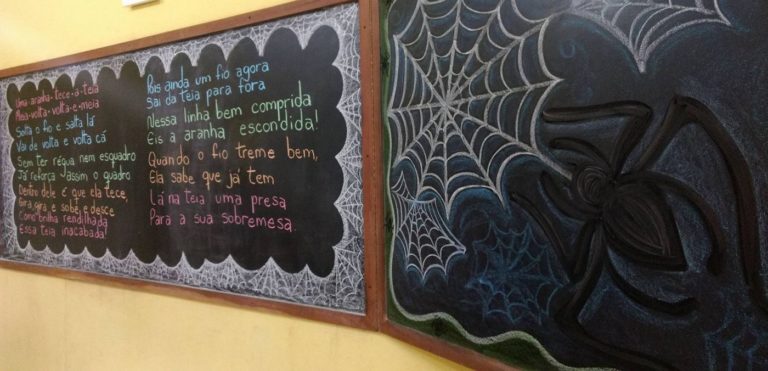 Uma aranha tece a teia
Meia volta volta e meia
Solta o fio e salta lá
Vai de volta e volta cá
Sem ter régua nem esquadro
Já reforça assim o quadro
Dentro dele é que ela tece,
Gira gira e sobe e desce
Como brilha rendilhada
Essa teia inacabada!
Pois ainda um fio agora
Sai da teia para fora
Nessa linha bem comprida
Eis a aranha escondida!
Quando o fio treme bem,
Ela sabe que já tem
Lá na teia uma presa
Para a sua sobremesa.